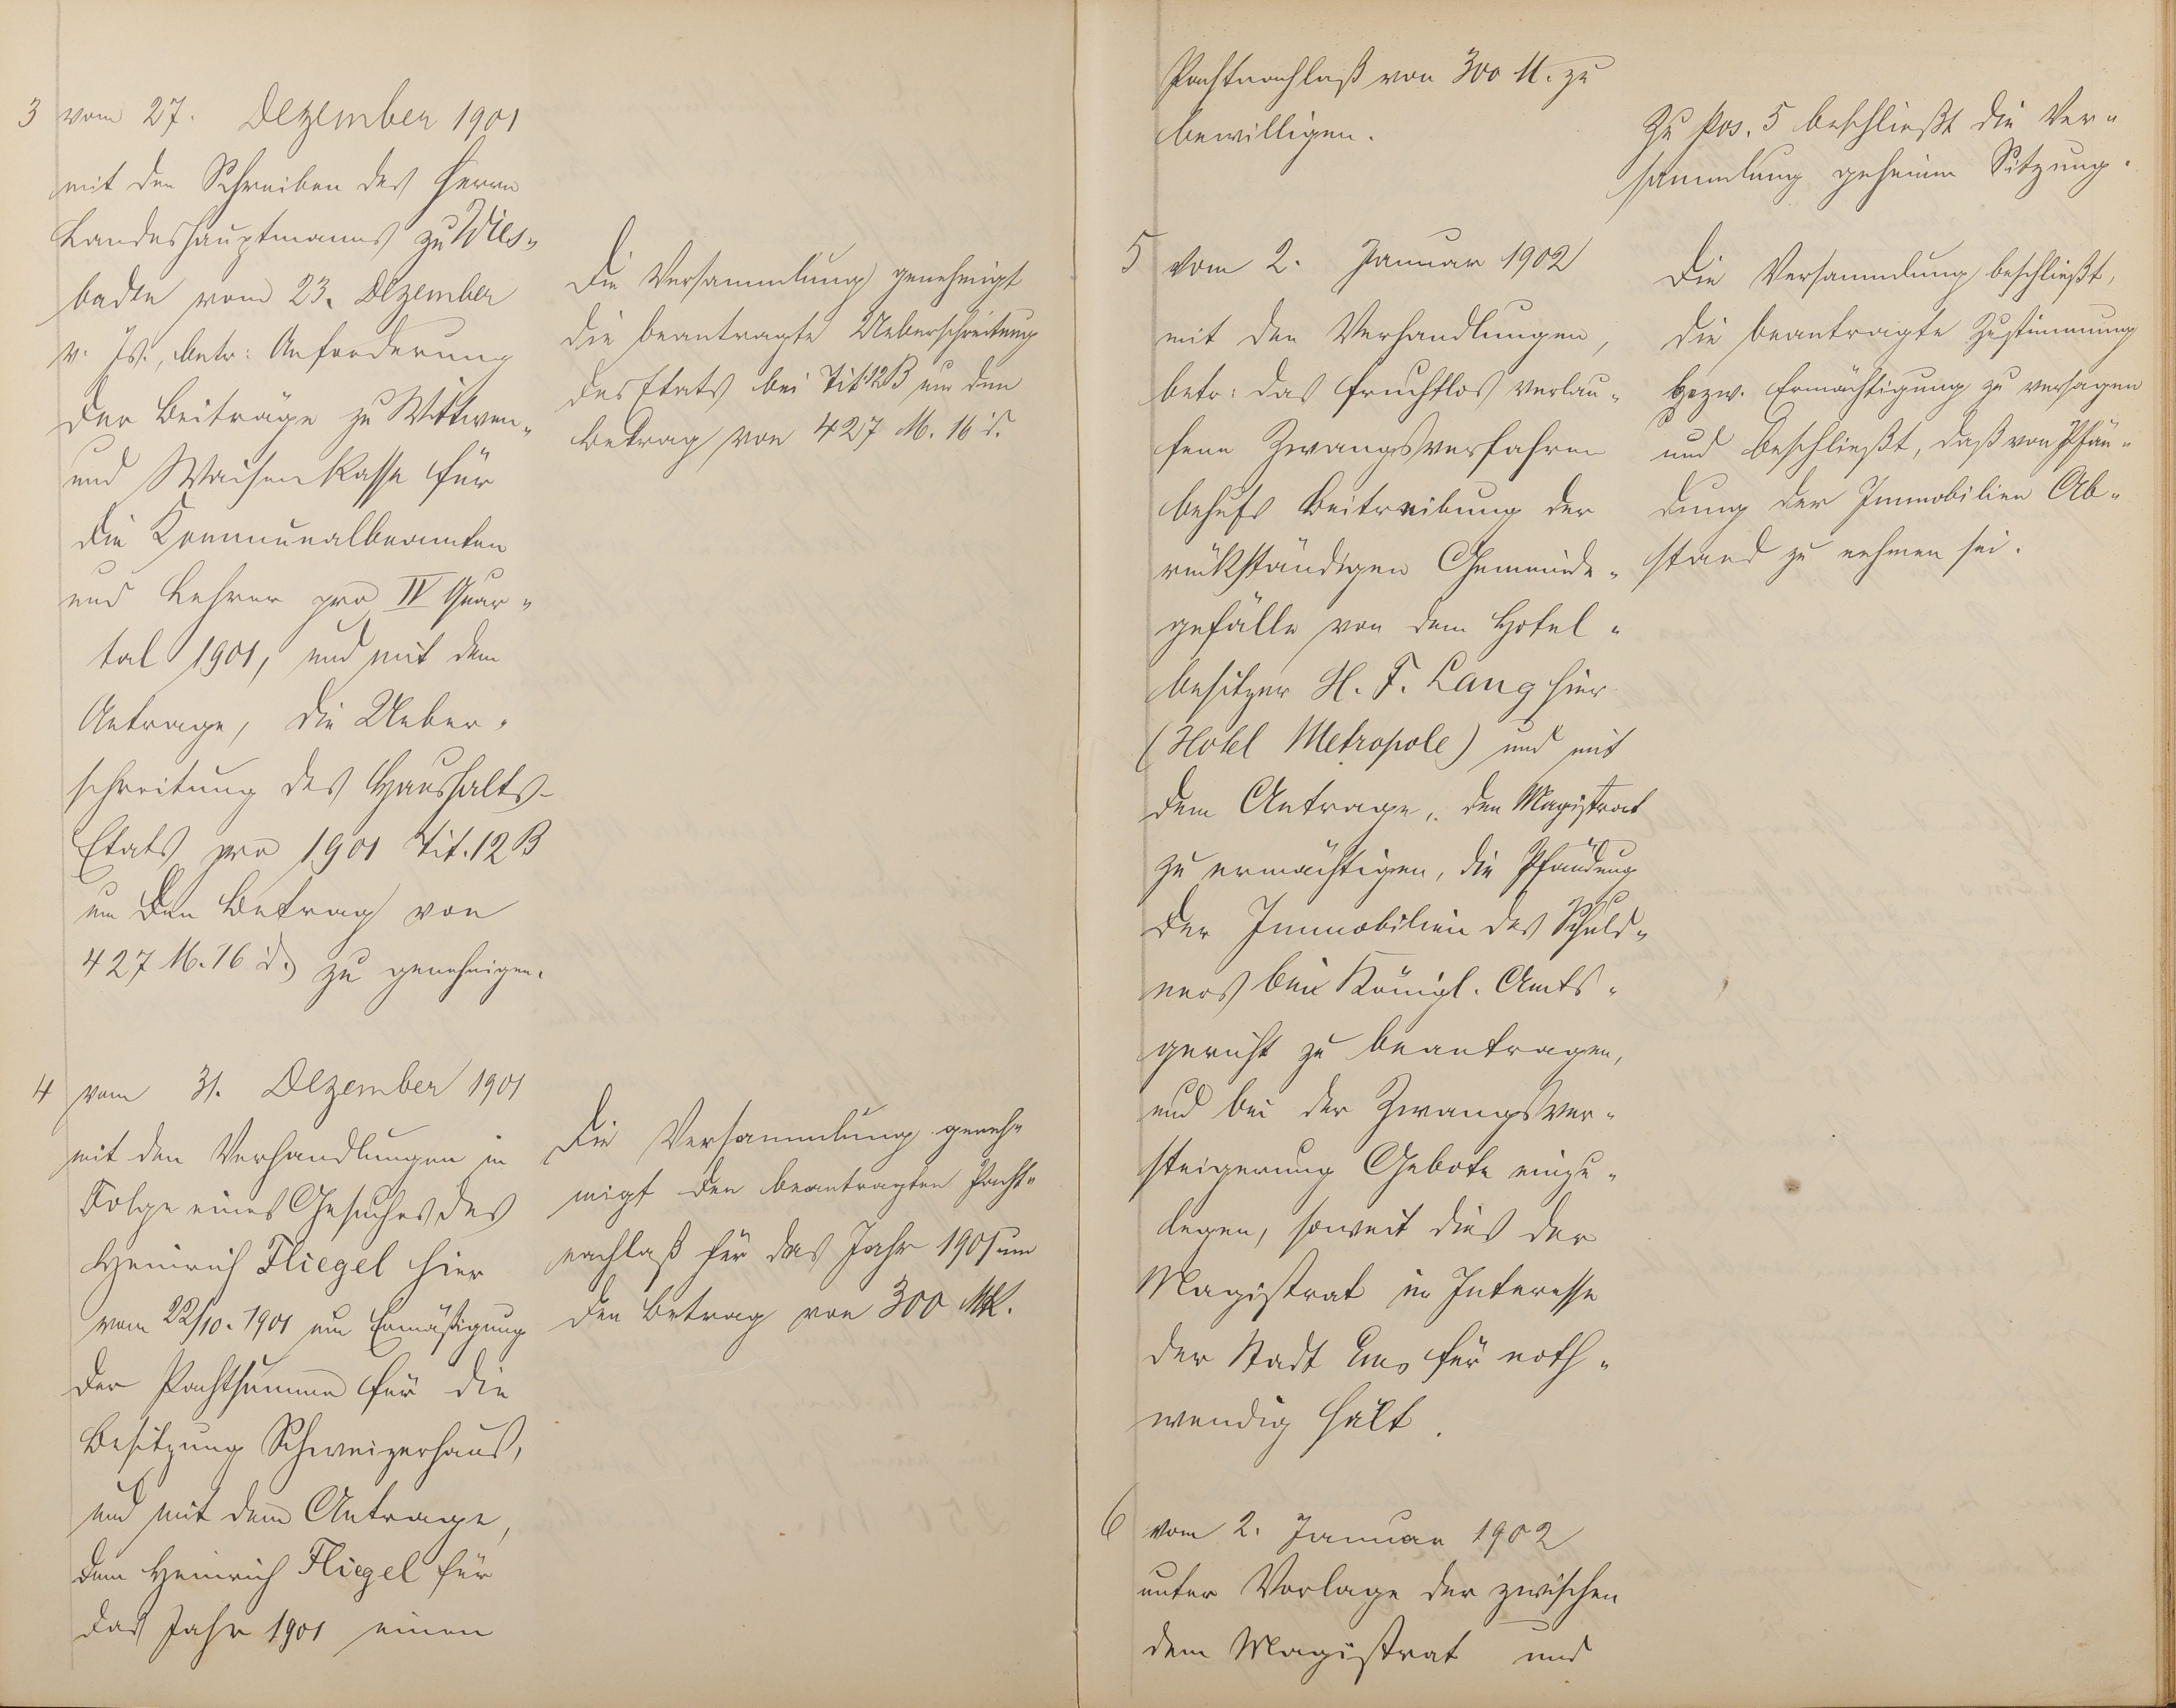 3 vom 27. Dezember 1901
mit den Schreiben des Herrn
Landeshauptmanns zu Wies-
baden vom 23. Dezember
v. Js., betr: Anforderung
der Beiträge zu Wittwen-
und Waisenkasse für
die Kommunalbeamten
und Lehrer pro IV Quar-
tal 1901, und mit dem
Antrage, die Ueber-
schreitung des Haushalts-
Etats pro 1901 Tit. 12 B
um den Betrag von
427 M. 16 d. zu genehmigen.
Die Versammlung genehmigt
die beantragte Ueberschreitung
des Etats bei Tit 12 B um den
Betrag von 427 M. 16 d.
4 vom 31. Dezember 1901
mit den Verhandlungen in
Folge eines Gesuches des
Heinrich Fliegel hier
vom 22/10. 1901 um Ermäßigung
der Pachtsumme für die
Besitzung Schweizerhaus,
und mit dem Antrage,
dem Heinrich Fliegel für
das Jahr 1901 einen
Die Versammlung geneh-
migt den beantragten Pacht-
nachlaß für das Jahr 1901 um
den Betrag von 300 Mk.
Pachtnachlaß von 300 M. zu
bewilligen.
Zu Pos. 5 beschließt die Ver-
sammlung geheime Sitzung.
5 vom 2. Januar 1902
mit den Verhandlungen,
betr: das fruchtlos verlau-
fene Zwangsverfahren
behufs Beitreibung der
rückständigen Gemeinde-
gefälle von dem Hotel-
besitzer H. F. Lang hier
(Hotel Metropole) und mit
dem Antrage, den Magistrat
zu ermächtigen, die Pfändung
der Immobilien des Schuld-
ners bei Königl. Amts-
gericht zu beantragen,
und bei der Zwangsver-
steigerung Gebote einzu-
legen, soweit dies der
Magistrat im Interesse
der Stadt Ems für noth-
wendig hält.
Die Versammlung beschließt,
die beantragte Zustimmung
bezw. Ermächtigung zu versagen
und beschließt, daß von Pfän-
dung der Immobilien Ab-
stand zu nehmen sei.
6 vom 2. Januar 1902
unter Vorlage der zwischen
dem Magistrat und